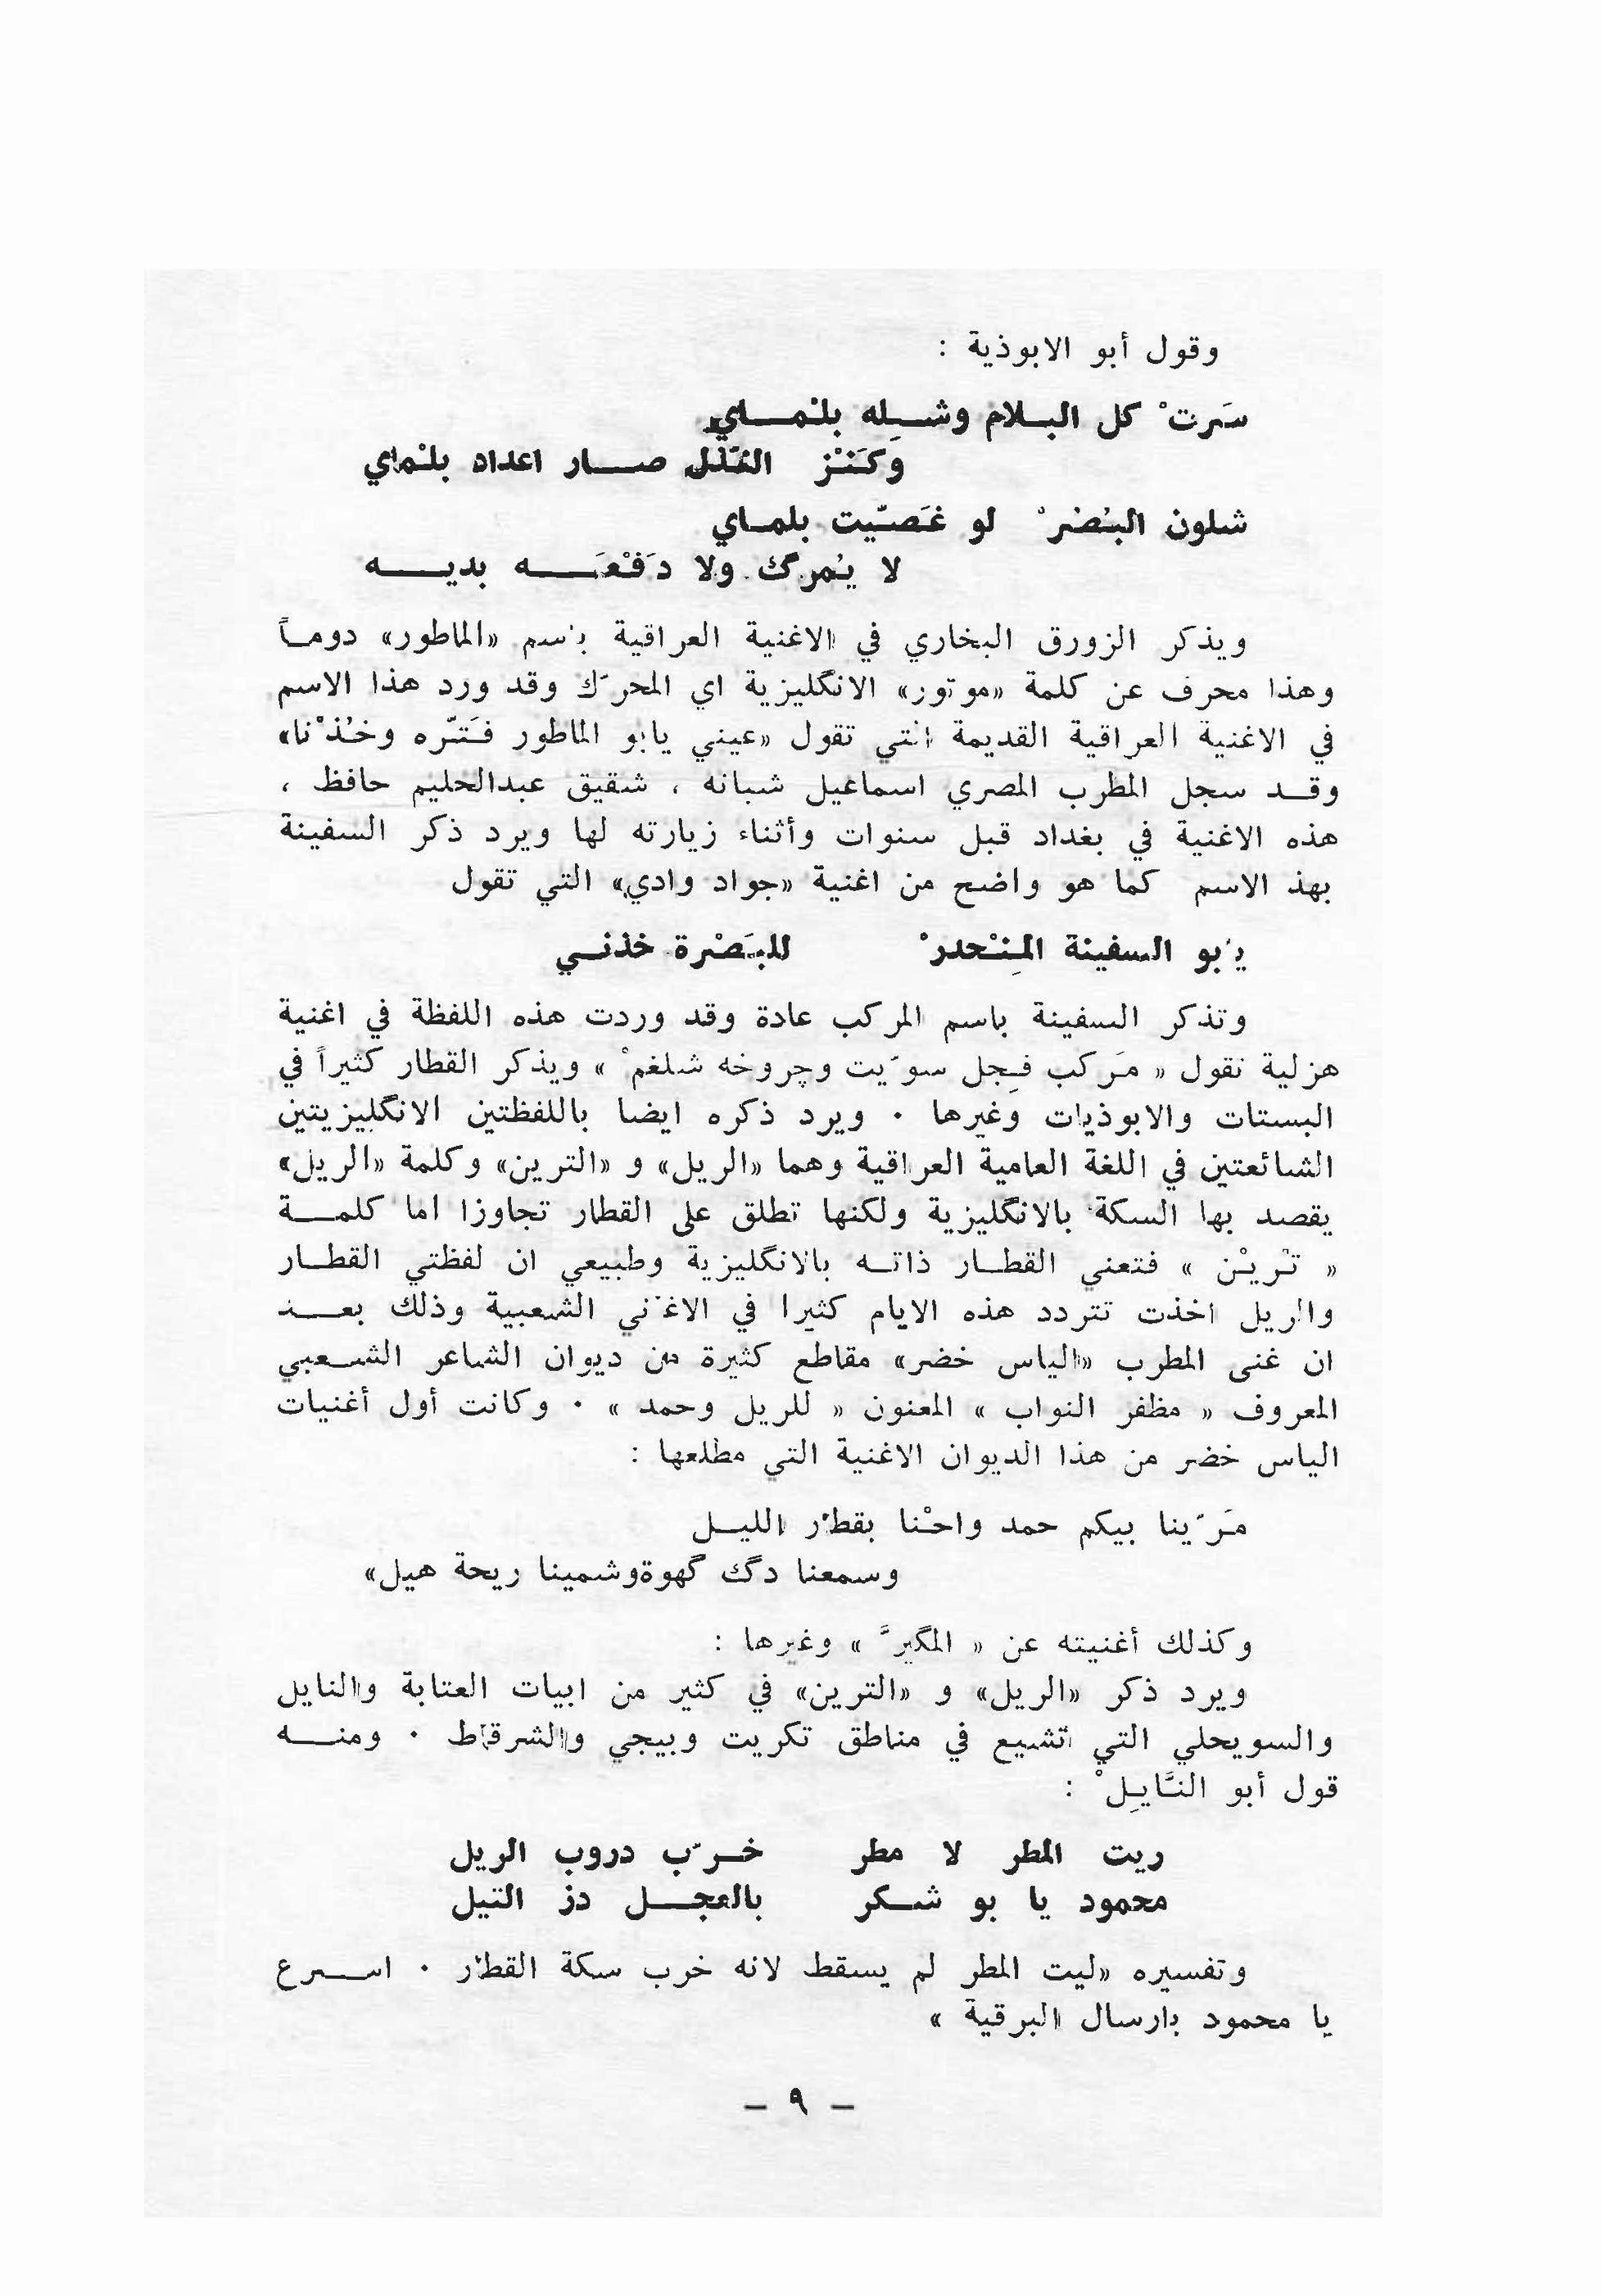 وقول أبو الابوذية :
سَرتْ كل البـلام وشـله بلنماي
وكَنْز القلل صـار اعداد بلنْماي
شلون البُضرْ لو غَصّيت بلماي
لا يُمرگ ولا دَفْعَـه بديـه
ويذكر الزورق البخاري في الاغنية العراقية باسم «الماطور» دومـاً
وهذا محرف عن كلمة «موتور» الانگليزية اي المحرّك وقد ورد هذا الاسم
في الاغنية العراقية القديمة التي تقول «عيني يابو الماطور فَتّره وخُذْنا»
وقـد سجل المطرب المصري اسماعيل شبانه ، شقيق عبدالحليم حافظ ،
هذه الاغنية في بغداد قبل سنوات وأثناء زيارته لها ويرد ذكر السفينة
بهذ الاسم كما هو واضح من اغنية «جواد وادي» التي تقول
يابو السفينة المِنْحدرْ للبَصْرة خذنـي
وتذكر السفينة باسم المركب عادة وقد وردت هذه اللفظة في اغنية
هزلية تقول « مَركب فِجل سوّيت وچروخه شلغمْ » ويذكر القطار كثيراً في
البستات والابوذيات وغيرها ٠ ويرد ذكره ايضا باللفظتين الانگليزيتين
الشائعتين في اللغة العامية العراقية وهما «الريل» و «الترين» وكلمة «الريل»
يقصد بها السكة بالانگليزية ولكنها تطلق على القطار تجاوزا اما كلمـة
« تْريْن » فتعني القطـار ذاتـه بالانگليزية وطبيعي ان لفظتي القطـار
والريل اخذت تتردد هذه الايام كثيرا في الاغاني الشعبية وذلك بعـد
ان غنى المطرب «الياس خضر» مقاطع كثيرة من ديوان الشاعر الشـعبي
المعروف « مظفر النواب » المعنون « للريل وحمد » ٠ وكانت أول أغنيات
الياس خضر من هذا الديوان الاغنية التي مطلعها :
مَرّينا بيكم حمد واحْنا بقطار الليـل
وسمعنا دگ گهوةوشمينا ريحة هيل»
وكذلك أغنيته عن « المگيرّ » وغيرها :
ويرد ذكر «الريل» و «الترين» في كثير من ابيات العتابة والنايل
والسويحلي التي تشيع في مناطق تكريت وبيجي والشرقاط ٠ ومنـه
قول أبو النَّايِلْ :
ريت المطر لا مطر خـرّب دروب الريل
محمود يا بو شـكر بالعجـل دز التيل
وتفسيره «ليت المطر لم يسقط لانه خرب سكة القطار ٠ اسـرع
يا محمود بارسال البرقية »
– ٩ –